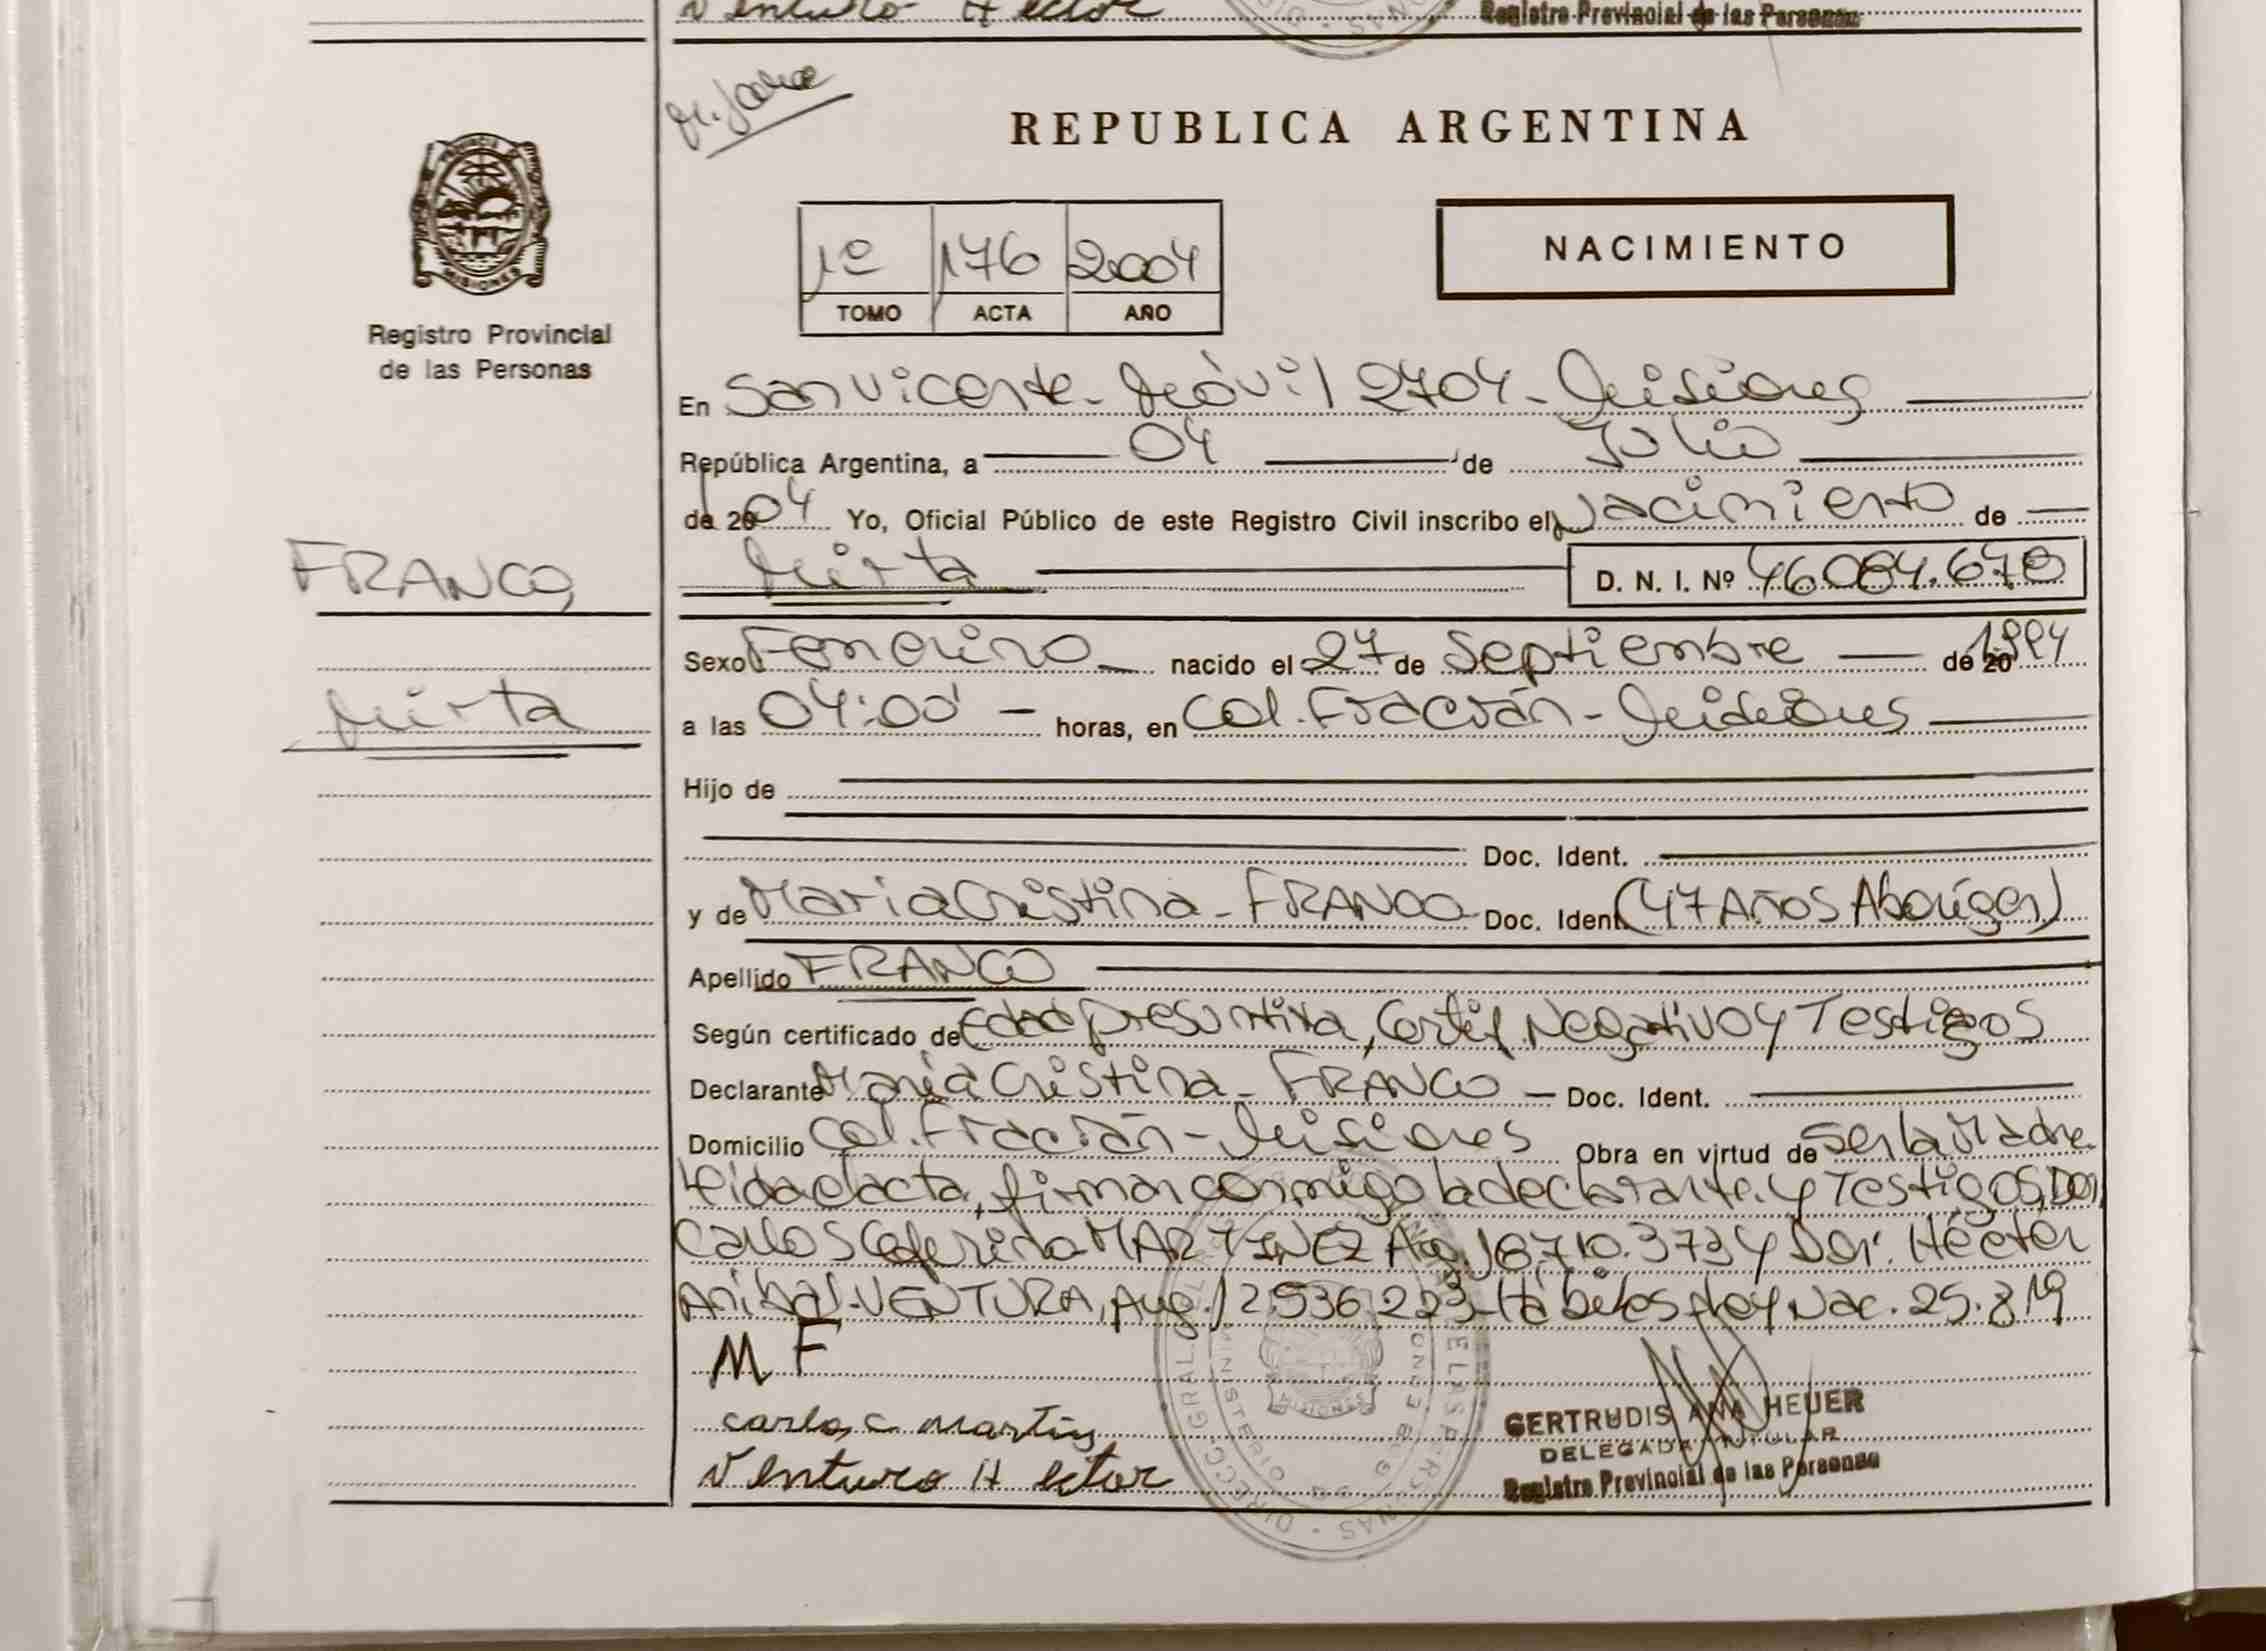 Venturo Hector
Registro Provincial de las Personas
REPUBLICA ARGENTINA
PROVINCIA DE
MISIONES
Registro Provincial
de las Personas
1º 176 2004
TOMO ACTA AÑO
NACIMIENTO
En San Vicente - Móvil 2704 - Misiones
República Argentina, a 04 de Julio
de 2004 Yo, Oficial Público de este Registro Civil inscribo el Nacimiento de
FRANCO,
Mirta
Mirta D. N. I. Nº 46.084.670
Sexo Femenino nacido el 27 de Septiembre de 20 1994
a las 04:00 - horas, en Col. Fracrán - Misiones
Hijo de
Doc. Ident.
y de Maria Cristina - FRANCO Doc. Ident. (47 Años Aborigen)
Apellido FRANCO
Según certificado de Edad presuntiva, Certif. Negativo y Testigos
Declarante María Cristina - FRANCO - Doc. Ident.
Domicilio Col. Fracrán - Misiones Obra en virtud de ser la Madre.
Leida el acta, firman conmigo la declarante y Testigos, Don
Carlos Ceferino MARTINEZ Arg. 18.710.373 y Don. Héctor
Anibal - VENTURA, Arg. 12.536.223 - Hábiles - Ley Nac. 25.819
M F
carlos c martins
Venturo Hector
GERTRUDIS ANA HEUER
DELEGADA TITULAR
Registro Provincial de las Personas